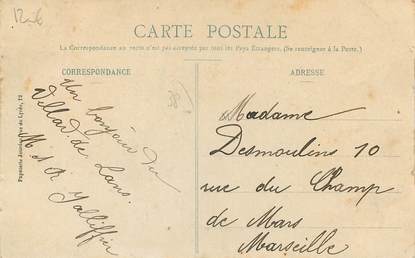 CARTE POSTALE
La Correspondance au recto n'est pas acceptée par tous les Pays Étrangers. (Se renseigner à la Poste.)
CORRESPONDANCE
ADRESSE
Un bonjour du
Villard de Lans.
M et R
Papeterie du Lycée, 12
Madame
Desmoulins 10
rue du Champ
de Mars
Marseille